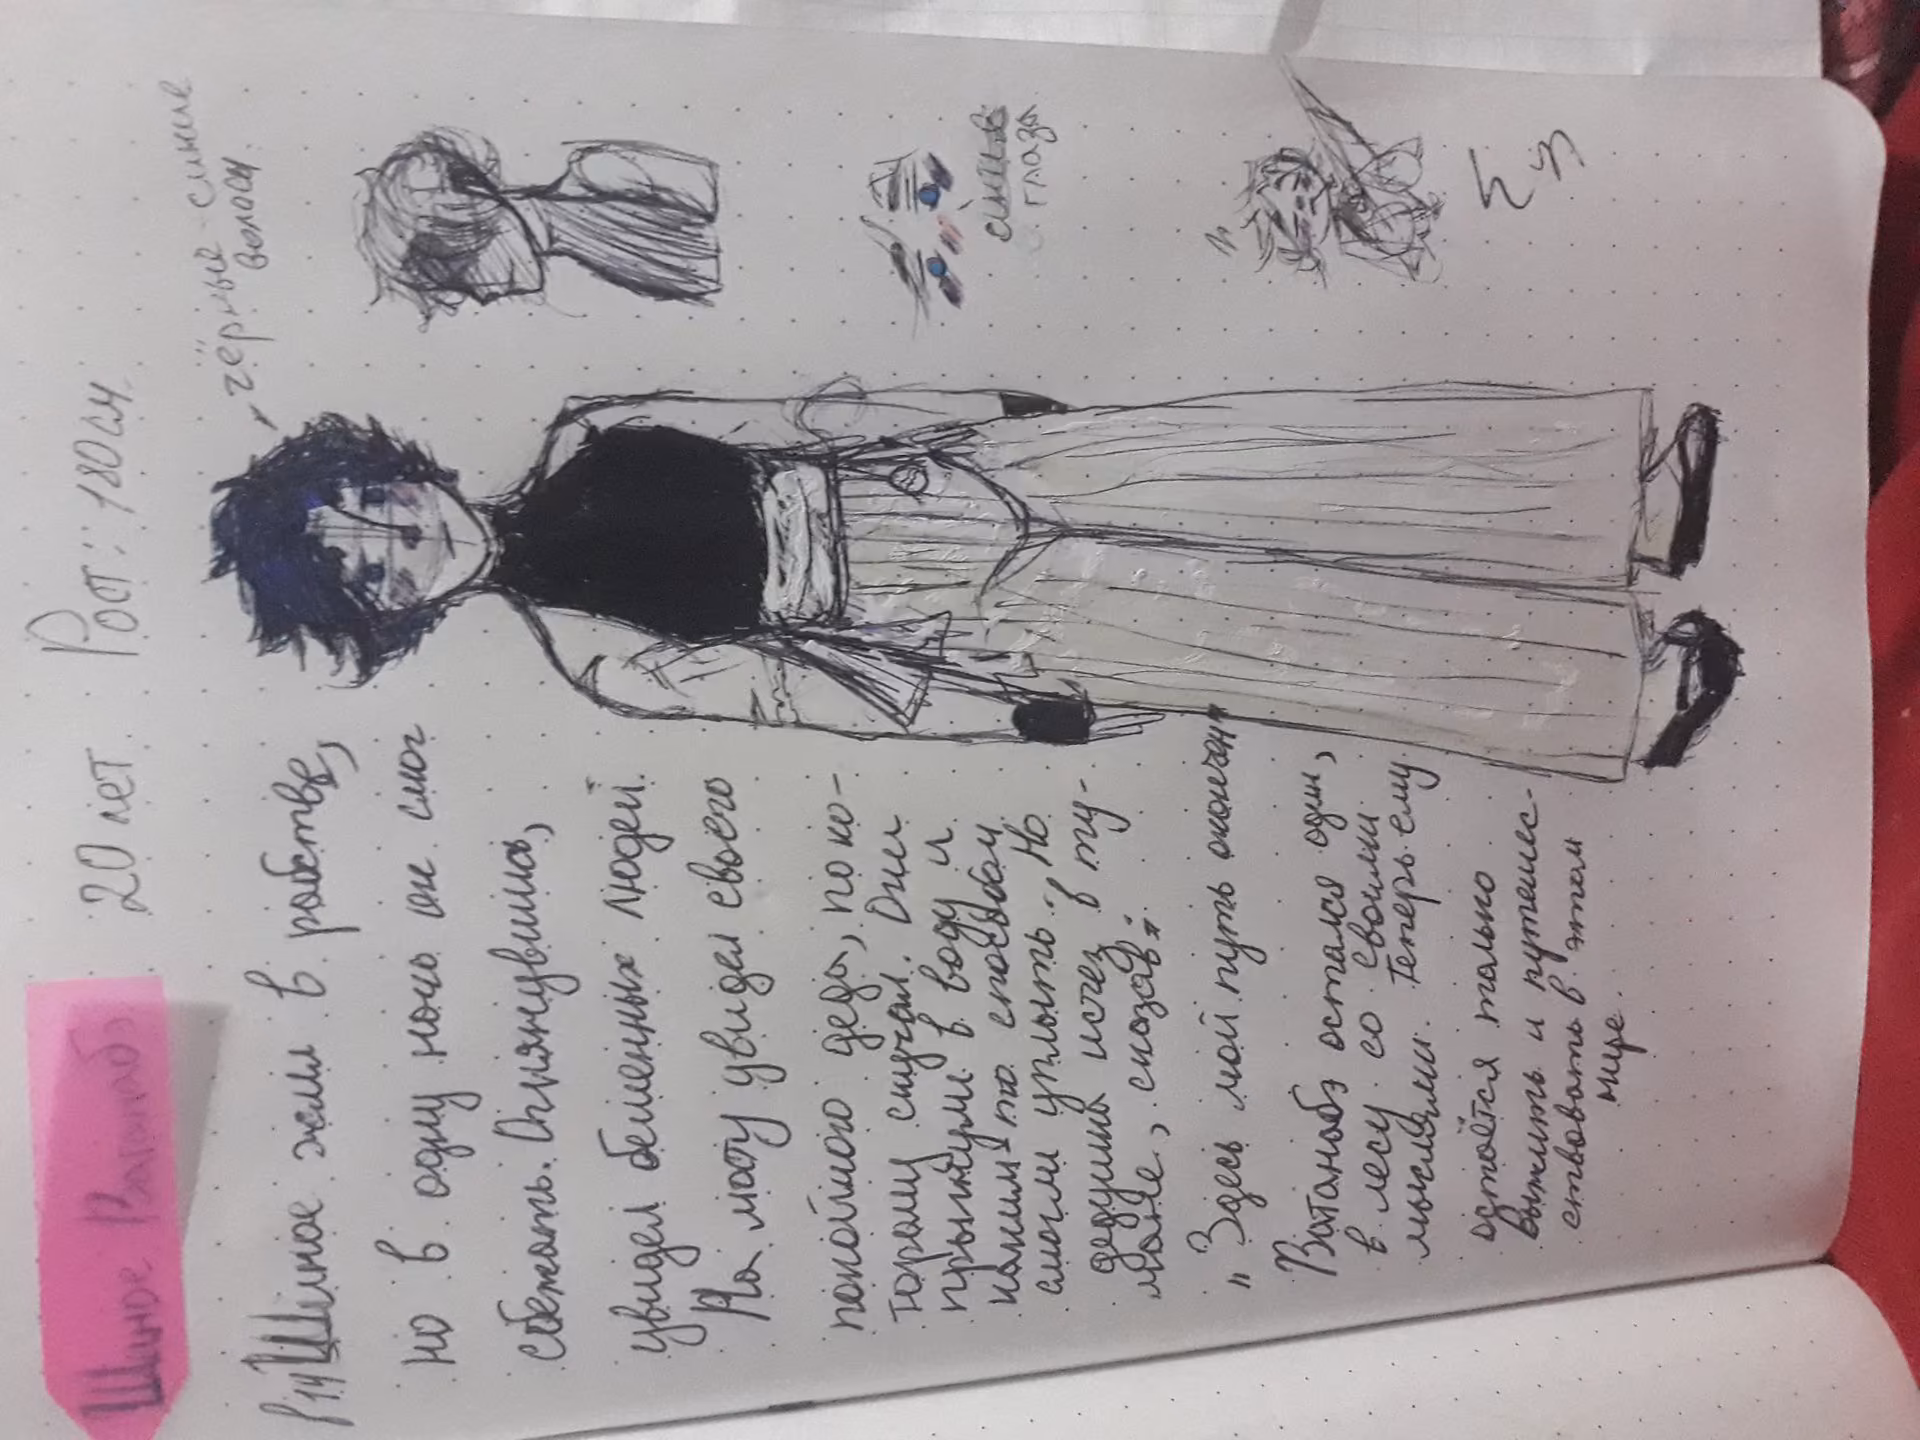 Шиное Ватанабэ
20 лет
Рост: 180 см.
чёрные-синие
волосы.
Шиное жил в рабстве,
но в одну ночь он смог
сбежать. Оглянувшись,
увидел бешенных людей.
На мосту увидел своего
покойного деда, по ко-
торому скучал. Они
прыгнули в воду и
каким-то способом
смогли уплыть. Но
дедушка исчез в ту-
мане, сказав:
"Здесь мой путь окончен"
Ватанабэ остался один,
в лесу со своими
мыслями. Теперь ему
остаётся только
выжить и путешес-
ствовать в этом
мире.
синие
глаза